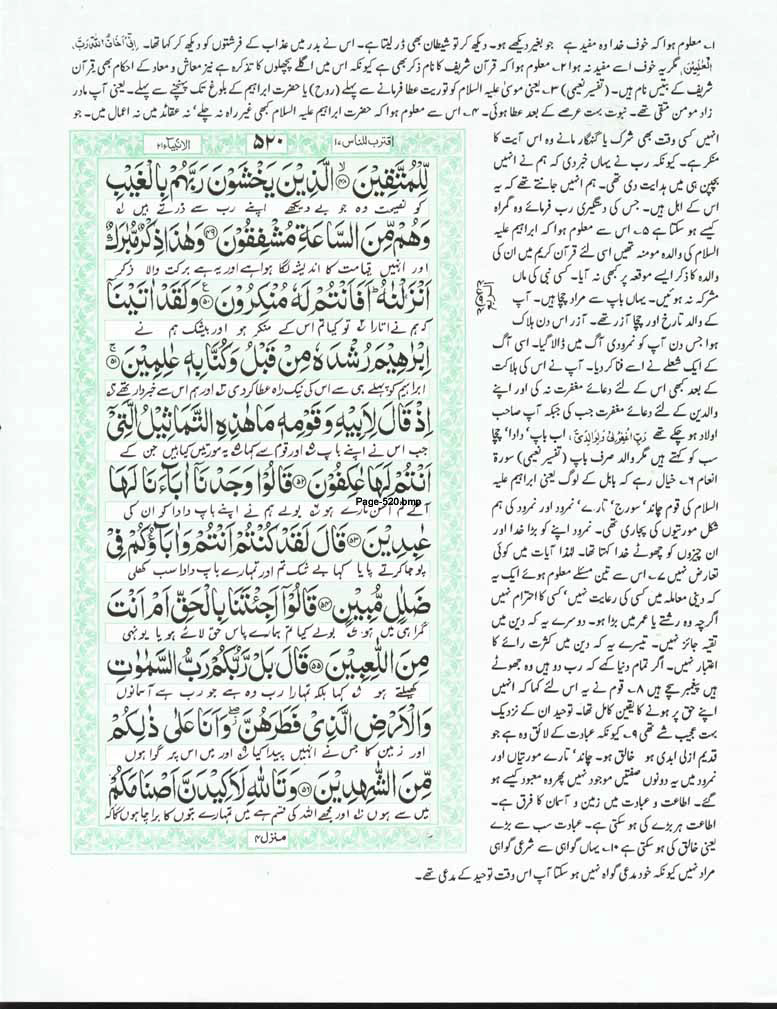 ۱۔ معلوم ہوا کہ خوف خدا وہ مفید ہے جو بغیر دیکھے ہو۔ دیکھ کر تو شیطان بھی ڈر لیتا ہے۔ اس نے بدر میں عذاب کے فرشتوں کو دیکھ کر کہا تھا۔ اِنِّیْ اَخَافُ اللّٰہَ رَبَّ
الْعٰلَمِیْنَ، مگر یہ خوف اسے مفید نہ ہوا ۲۔ معلوم ہوا کہ قرآن شریف کا نام ذکر بھی ہے کیونکہ اس میں اگلے پچھلوں کا تذکرہ ہے نیز معاش و معاد کے احکام بھی قرآن
شریف کے بتیس نام ہیں۔ (تفسیر نعیمی) ۳۔ یعنی موسیٰ علیہ السلام کو توریت عطا فرمانے سے پہلے (روح) یا حضرت ابراہیم کے بلوغ تک پہنچنے سے پہلے۔ یعنی آپ مادر
زاد مومن متقی تھے۔ نبوت بہت عرصے کے بعد عطا ہوئی۔ ۴۔ اس سے معلوم ہوا کہ حضرت ابراہیم علیہ السلام کبھی غیر راہ نہ چلے، نہ عقائد میں نہ اعمال میں۔ جو
انہیں کسی وقت بھی شرک یا گنہگار مانے وہ اس آیت کا
منکر ہے۔ کیونکہ رب نے یہاں خبر دی کہ ہم نے انہیں
بچپن ہی میں ہدایت دی تھی۔ ہم انہیں جانتے تھے کہ یہ
اس کے اہل ہیں۔ جس کی دستگیری رب فرمائے وہ گمراہ
کیسے ہو سکتا ہے ۵۔ اس سے معلوم ہوا کہ ابراہیم علیہ
السلام کی والدہ مومنہ تھیں اسی لئے قرآن کریم میں ان کی
والدہ کا ذکر ایسے موقعہ پر کبھی نہ آیا۔ کسی نبی کی ماں
مشرکہ نہ ہوئیں۔ یہاں باپ سے مراد چچا ہیں۔ آپ
کے والد تارخ اور چچا آزر تھے۔ آزر اس دن ہلاک
ہوا جس دن آپ کو نمرودی آگ میں ڈالا گیا۔ اسی آگ
کے ایک شعلے نے اسے فنا کر دیا۔ آپ نے اس کی ہلاکت
کے بعد کبھی اس کے لئے دعائے مغفرت نہ کی اور اپنے
والدین کے لئے دعائے مغفرت جب کی جبکہ آپ صاحب
اولاد ہو چکے تھے رَبِّ اغْفِرْلِیْ وَلِوَالِدَیَّ، اب باپ، دادا، چچا
سب کو کہتے ہیں مگر والد صرف باپ (تفسیر نعیمی) سورۃ
انعام ۶۔ خیال رہے کہ بابل کے لوگ یعنی ابراہیم علیہ
السلام کی قوم چاند، سورج، تارے، نمرود اور نمرود کی ہم
شکل مورتیوں کی پجاری تھی۔ نمرود اپنے کو بڑا خدا اور
ان چیزوں کو چھوٹے خدا کہتا تھا۔ لہٰذا آیات میں کوئی
تعارض نہیں ۷۔ اس سے تین مسئلے معلوم ہوئے ایک یہ
کہ دینی معاملہ میں کسی کی رعایت نہیں، کسی کا احترام نہیں
اگرچہ وہ رشتے یا عمر میں بڑا ہو۔ دوسرے یہ کہ دین میں
تقیہ جائز نہیں۔ تیسرے یہ کہ دین میں کثرت رائے کا
اعتبار نہیں۔ اگر تمام دنیا کہے کہ رب دو ہیں وہ جھوٹے
ہیں پیغمبر سچے ہیں ۸۔ قوم نے یہ اس لئے کہا کہ انہیں
اپنے حق پر ہونے کا یقین کامل تھا۔ توحید ان کے نزدیک
بہت عجیب شے تھی ۹۔ کیونکہ عبادت کے لائق وہ ہے جو
قدیم ازلی ابدی ہو خالق ہو۔ چاند، تارے مورتیاں اور
نمرود میں یہ دونوں صفتیں موجود نہیں پھر وہ معبود کیسے ہو
گئے۔ اطاعت و عبادت میں زمین و آسمان کا فرق ہے۔
اطاعت ہر بڑے کی ہو سکتی ہے۔ عبادت سب سے بڑے
یعنی خالق کی ہو سکتی ہے ۱۰۔ یہاں گواہی سے شرعی گواہی
مراد نہیں کیونکہ خود مدعی گواہ نہیں ہو سکتا آپ اس وقت توحید کے مدعی تھے۔
اقترب للناس ۱۷
۵۲۰
الانبیاء ۲۱
لِّلْمُتَّقِیْنَ ﴿۴۸﴾ الَّذِیْنَ یَخْشَوْنَ رَبَّهُمْ بِالْغَیْبِ
کو نصیحت وہ جو بے دیکھے اپنے رب سے ڈرتے ہیں
وَهُمْ مِّنَ السَّاعَةِ مُشْفِقُوْنَ ﴿۴۹﴾ وَهٰذَا ذِكْرٌ مُّبٰرَكٌ
اور انہیں قیامت کا اندیشہ لگا ہوا ہے اور یہ ہے برکت والا ذکر
اَنْزَلْنٰهُ ؕ اَفَاَنْتُمْ لَهٗ مُنْكِرُوْنَ ﴿۵۰﴾ وَلَقَدْ اٰتَیْنَاۤ
کہ ہم نے اتارا تو کیا تم اس کے منکر ہو اور بیشک ہم نے
اِبْرٰهِیْمَ رُشْدَهٗ مِنْ قَبْلُ وَكُنَّا بِهٖ عٰلِمِیْنَ ﴿۵۱﴾
ابراہیم کو پہلے ہی سے اس کی نیک راہ عطا کر دی اور ہم اس سے خبردار تھے
اِذْ قَالَ لِاَبِیْهِ وَقَوْمِهٖ مَا هٰذِهِ التَّمَاثِیْلُ الَّتِیْۤ
جب اس نے اپنے باپ اور قوم سے کہا یہ مورتیں کیا ہیں جن کے
اَنْتُمْ لَهَا عٰكِفُوْنَ ﴿۵۲﴾ قَالُوْا وَجَدْنَاۤ اٰبَآءَنَا لَهَا
Page-520.bmp
آگے تم آسن مارے ہو بولے ہم نے اپنے باپ دادا کو ان کی
عٰبِدِیْنَ ﴿۵۳﴾ قَالَ لَقَدْ كُنْتُمْ اَنْتُمْ وَاٰبَآؤُكُمْ فِیْ
پوجا کرتے پایا کہا بے شک تم اور تمہارے باپ دادا سب کھلی
ضَلٰلٍ مُّبِیْنٍ ﴿۵۴﴾ قَالُوْۤا اَجِئْتَنَا بِالْحَقِّ اَمْ اَنْتَ
گمراہی میں ہو بولے کیا تم ہمارے پاس حق لائے ہو یا یونہی
مِنَ اللّٰعِبِیْنَ ﴿۵۵﴾ قَالَ بَلْ رَّبُّكُمْ رَبُّ السَّمٰوٰتِ
کھیلتے ہو کہا بلکہ تمہارا رب وہ ہے جو رب ہے آسمانوں
وَالْاَرْضِ الَّذِیْ فَطَرَهُنَّ ۖ وَاَنَا عَلٰی ذٰلِكُمْ
اور زمین کا جس نے انہیں پیدا کیا اور میں اس پر گواہوں
مِّنَ الشّٰهِدِیْنَ ﴿۵۶﴾ وَتَاللّٰهِ لَاَكِیْدَنَّ اَصْنَامَكُمْ
میں سے ہوں اور مجھے اللہ کی قسم ہے میں تمہارے بتوں کا برا چاہوں گا
منزل ۴